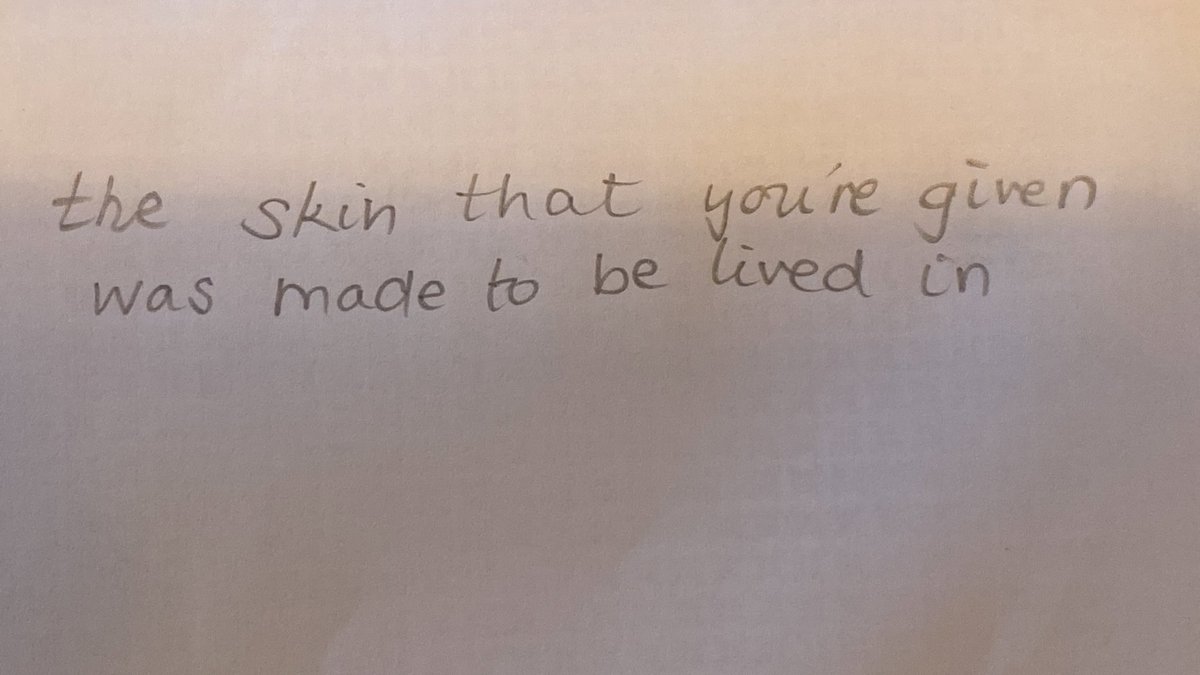 the skin that you're given
was made to be lived in